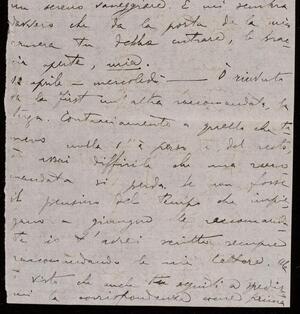 un sereno vaneggiare. E mi sembra
davvero che da la porta de la mia
camera tu debba entrare, le brac
cia aperte, mia.
12 aprile – mercoledì — Ò ricevuta
la un'altra raccomandata, la
Contrariamente a quello che te
mevo nulla s'è perso e del resto
è assai difficile che una racco
mandata si perda. Se non fosse
il pensiero del tempo che impie
gano a giungere le raccomanda
te io t'avrei scritto sempre
raccomandando le mie lettere.
visto che anche tu a spedir
mi la corrispondenza come prima